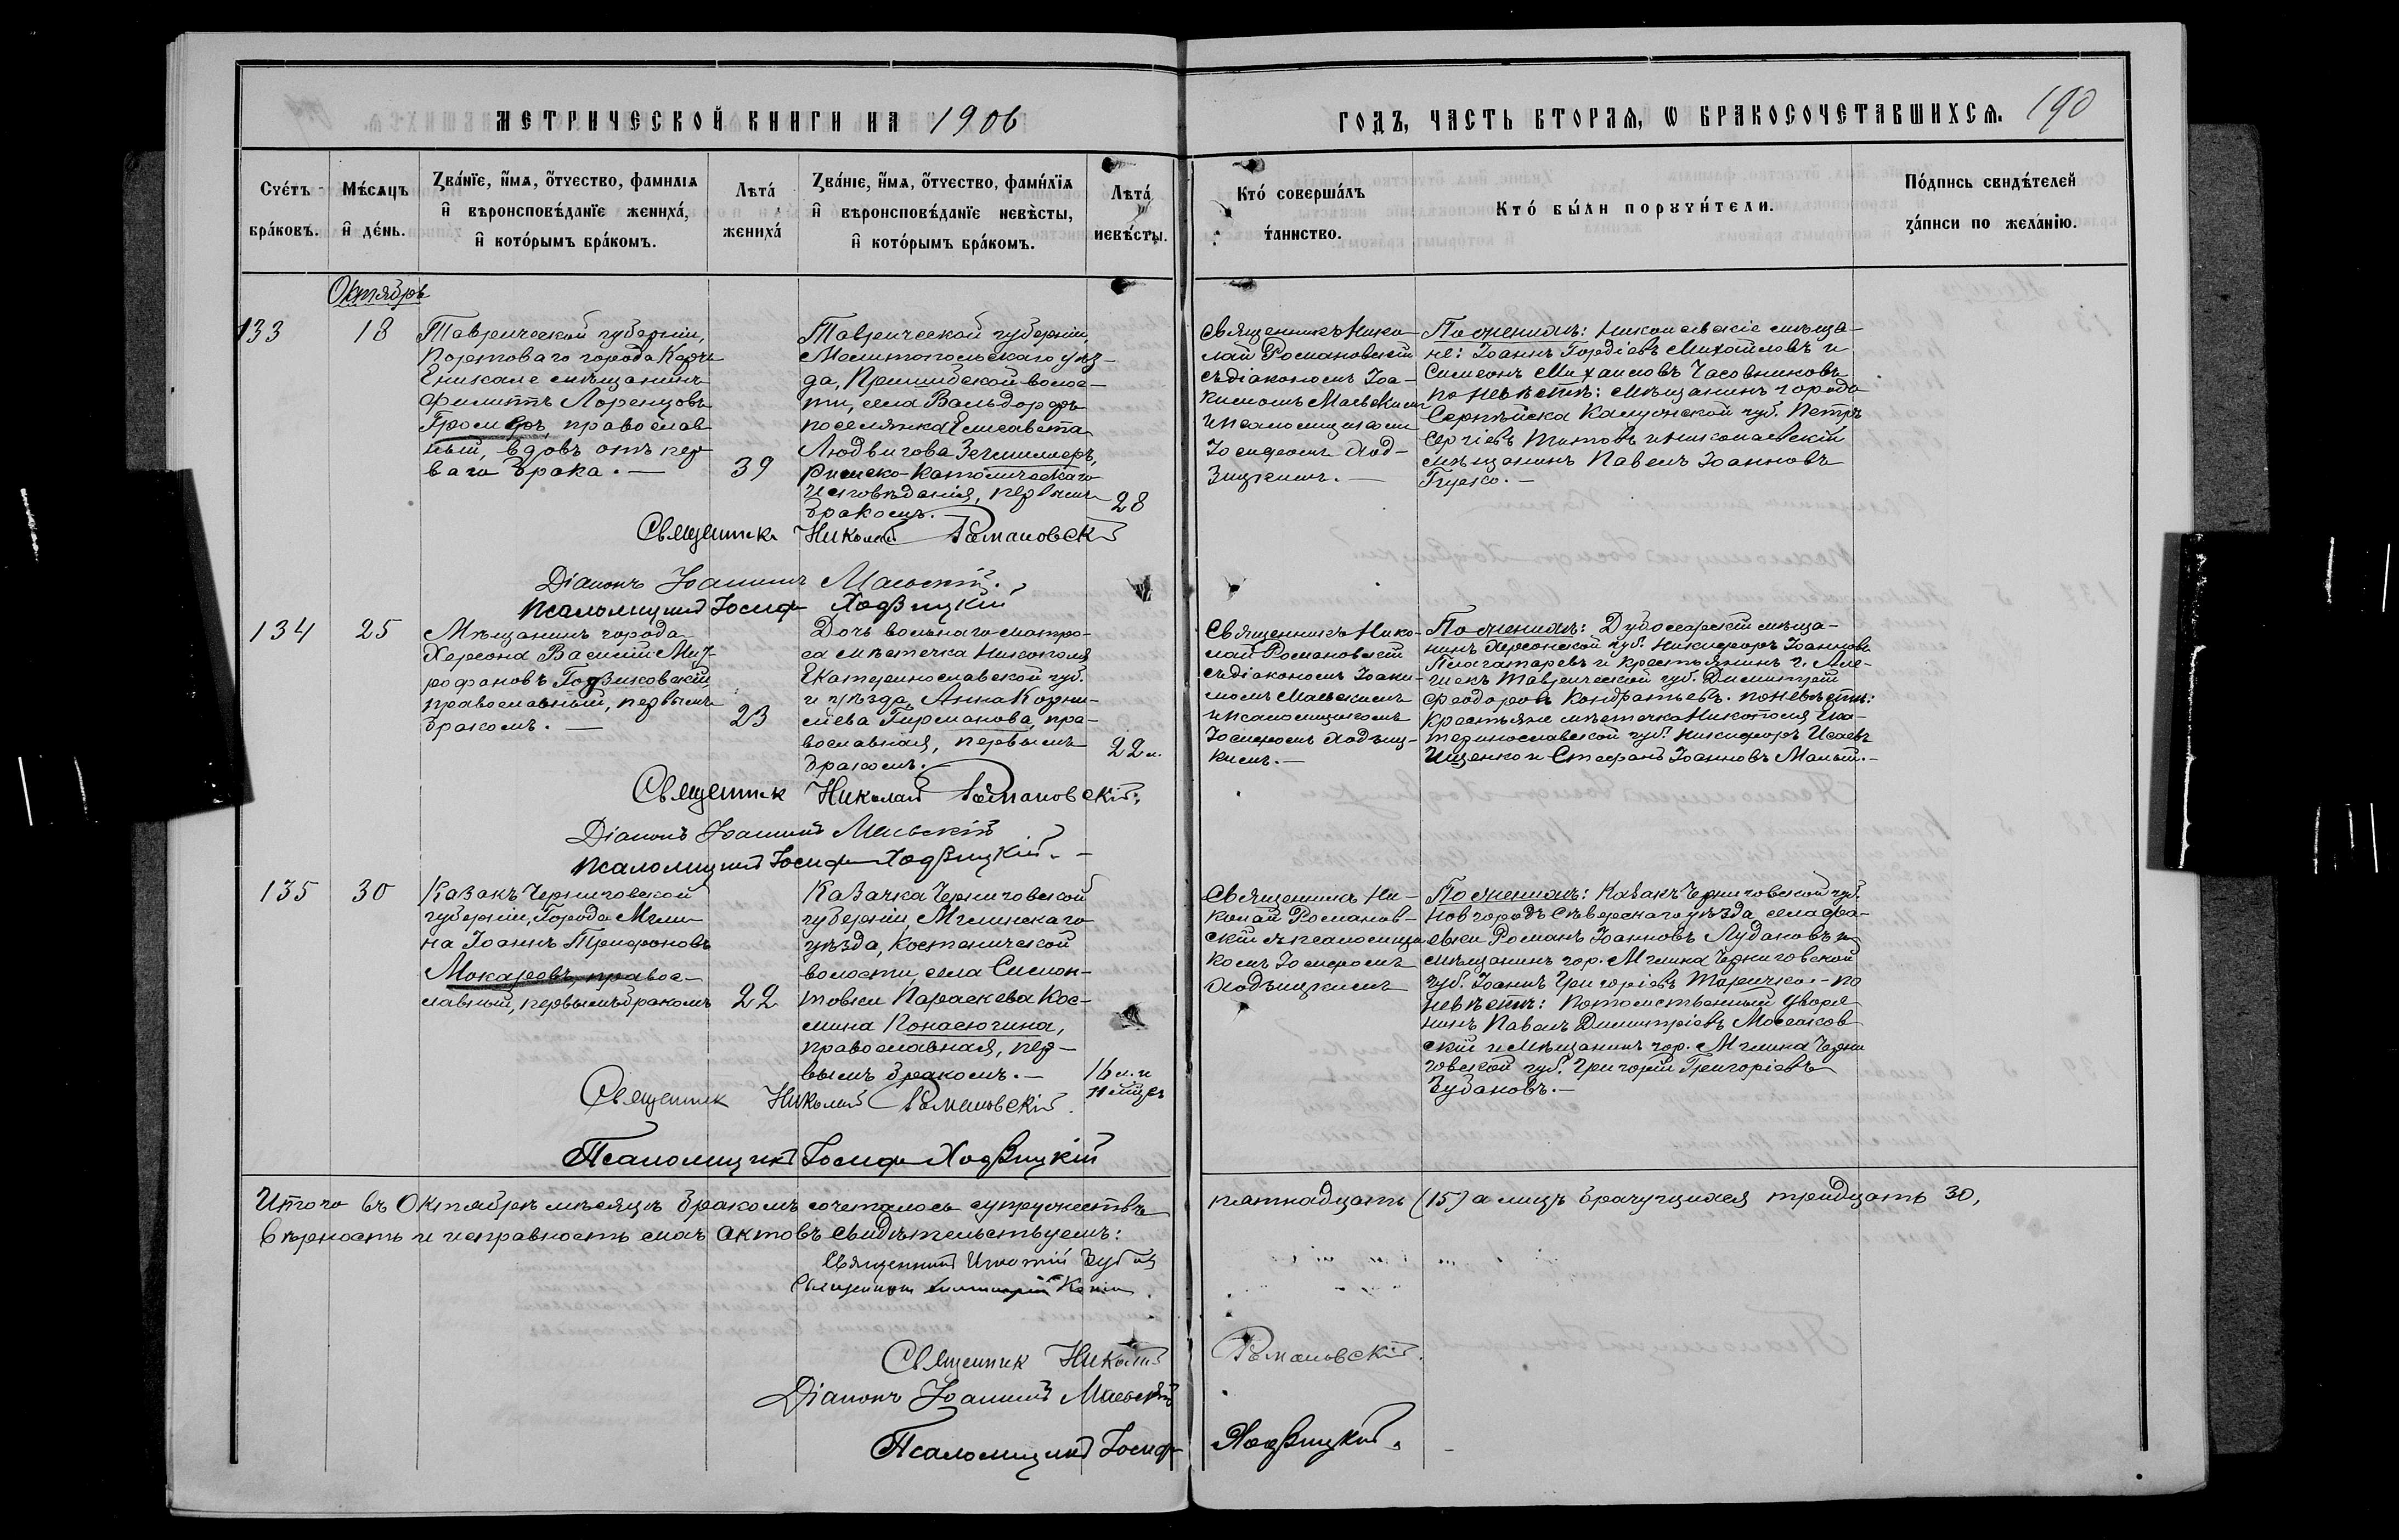 МЕТРИЧЕСКОЙ КНИГИ НА 1906
ГОДЪ, ЧАСТЬ ВТОРАѦ, Ѡ БРАКОСОЧЕТАВШИХСѦ. 190
Счéтъ
брáковъ.
Мѣ́сѧцъ
и҆ дéнь.
Ꙁвáнїе, и҆́мѧ, ѻ҆́тчество, фамилїѧ
и҆ вѣроисповѣ́данїе женихá,
и҆ котóрымъ брáкомъ.
Лѣтá
женихá
Ꙁвáнїе, и҆́мѧ, ѻ҆́тчество, фами́лїѧ
и҆ вѣроисповѣ́данїе невѣ́сты,
и҆ котóрымъ брáкомъ.
Лѣтá
невѣ́сты.
Ктó совершáлъ
тáинство.
Ктó бы́ли порꙋчи́тели.
Пóдпись свидѣ́телей
ꙁáписи по желáнїю.
Октябрь
133
18
Таврической губерніи,
Портоваго города Керчи
Еникале мѣщанинъ
Филиппъ Лоренцовъ
православ
ный, вдовъ отъ пер
ваго брака. —
39
Таврической губерніи,
Мелитопольскаго уѣз-
да, Пришибской волос-
ти, села Вальдорфъ
поселянка Елисавета
Людвигова
Римско-Католическаго
исповѣданія, первымъ
бракомъ. —
28
Священникъ Нико-
лай Романовскій
съ діакономъ Іоа-
кимомъ Маевскимъ
и псаломщикомъ
Іосифомъ Ход-
зицкимъ. —
По женихѣ: Николаевскіе мѣща-
не: Іоаннъ Гордіевъ Михайловъ и
Симеонъ Михаиловъ Часовниковъ
по невѣстѣ: Мѣщанинъ города
Серпейска Калужской губ. Петръ
Сергіевъ Титовъ и николаевскій
мѣщанинъ Павелъ Іоанновъ
Гуско. —
Священникъ Николай Романовскій
Діаконъ Іоакимъ Маевскій.
Псаломщикъ Іосифъ Ходзицкій
134
25
Мѣщанинъ города
Херсона Василій Мит-
рофановъ
православный, первымъ
бракомъ. —
23
Дочь вольнаго матро-
са мѣстечка Никополя
Екатеринославской губ.
и уѣзда, Анна Корни-
лиева Гирманова, пра-
вославная, первымъ
бракомъ. —
22 л.
Священникъ Нико-
лай Романовскій
съ діакономъ Іоаки-
момъ Маевскимъ
и псаломщикомъ
Іосифомъ Ходзиц-
кимъ. —
По женихѣ: Дубосарскій мѣща-
нинъ Херсонской губ. Никифоръ Іоанновъ
и крестьянинъ г. Але-
шекъ Таврической губ. Димитрій
Феодоровъ Кондратьевъ. по невѣстѣ:
Крестьяне мѣстечка Никополя Ека-
теринославской губ. Никифоръ Исаевъ
Ищенко и Стефанъ Іоанновъ Малый. —
Священникъ Николай Романовскій.
Діаконъ Іоакимъ Маевскій
Псаломщикъ Іосифъ Ходзицкій. —
135
30
Казакъ Черниговской
губерніи, Города Мгли-
на Іоаннъ Трифоновъ
Макаровъ, правос-
лавный, первымъ бракомъ
22
Казачка Черниговской
губерніи, Мглинскаго
уѣзда, Костеничской
волости, села Симон-
товки Параскева Кос-
мина Конасюгина,
православная, пер-
вымъ бракомъ. —
16 л. и
11 мѣс.
Священникъ Ни-
колай Романов-
скій съ псаломщи-
комъ Іосифомъ
Ходзицкимъ
По женихѣ: Казакъ Черниговской губ.
Новгородъ Сѣверскаго уѣзда, села
Романъ Іоанновъ Лудановъ и
мѣщанинъ гор. Мглина Черниговской
губ. Іоаннъ Григоріевъ — по
невѣстѣ: Потомственный дворя-
нинъ Павелъ Димитріевъ Массаков
скій и мѣщанинъ гор. Мглина Черни
говской губ. Григорій Григоріевъ
Чубановъ. —
Священникъ Николай Романовскій.
Псаломщикъ Іосифъ Ходзицкій
Итого въ Октябрѣ мѣсяцѣ бракомъ сочеталось супружествъ пятнадцать (15) а лицъ брачущихся тридцать 30,
вѣрность и исправность сихъ актовъ свидѣтельствуемъ:
Священникъ
Священникъ
Священникъ Николай Романовскій.
Діаконъ Іоакимъ Маевскій
Псаломщикъ Іосифъ Ходзицкій.